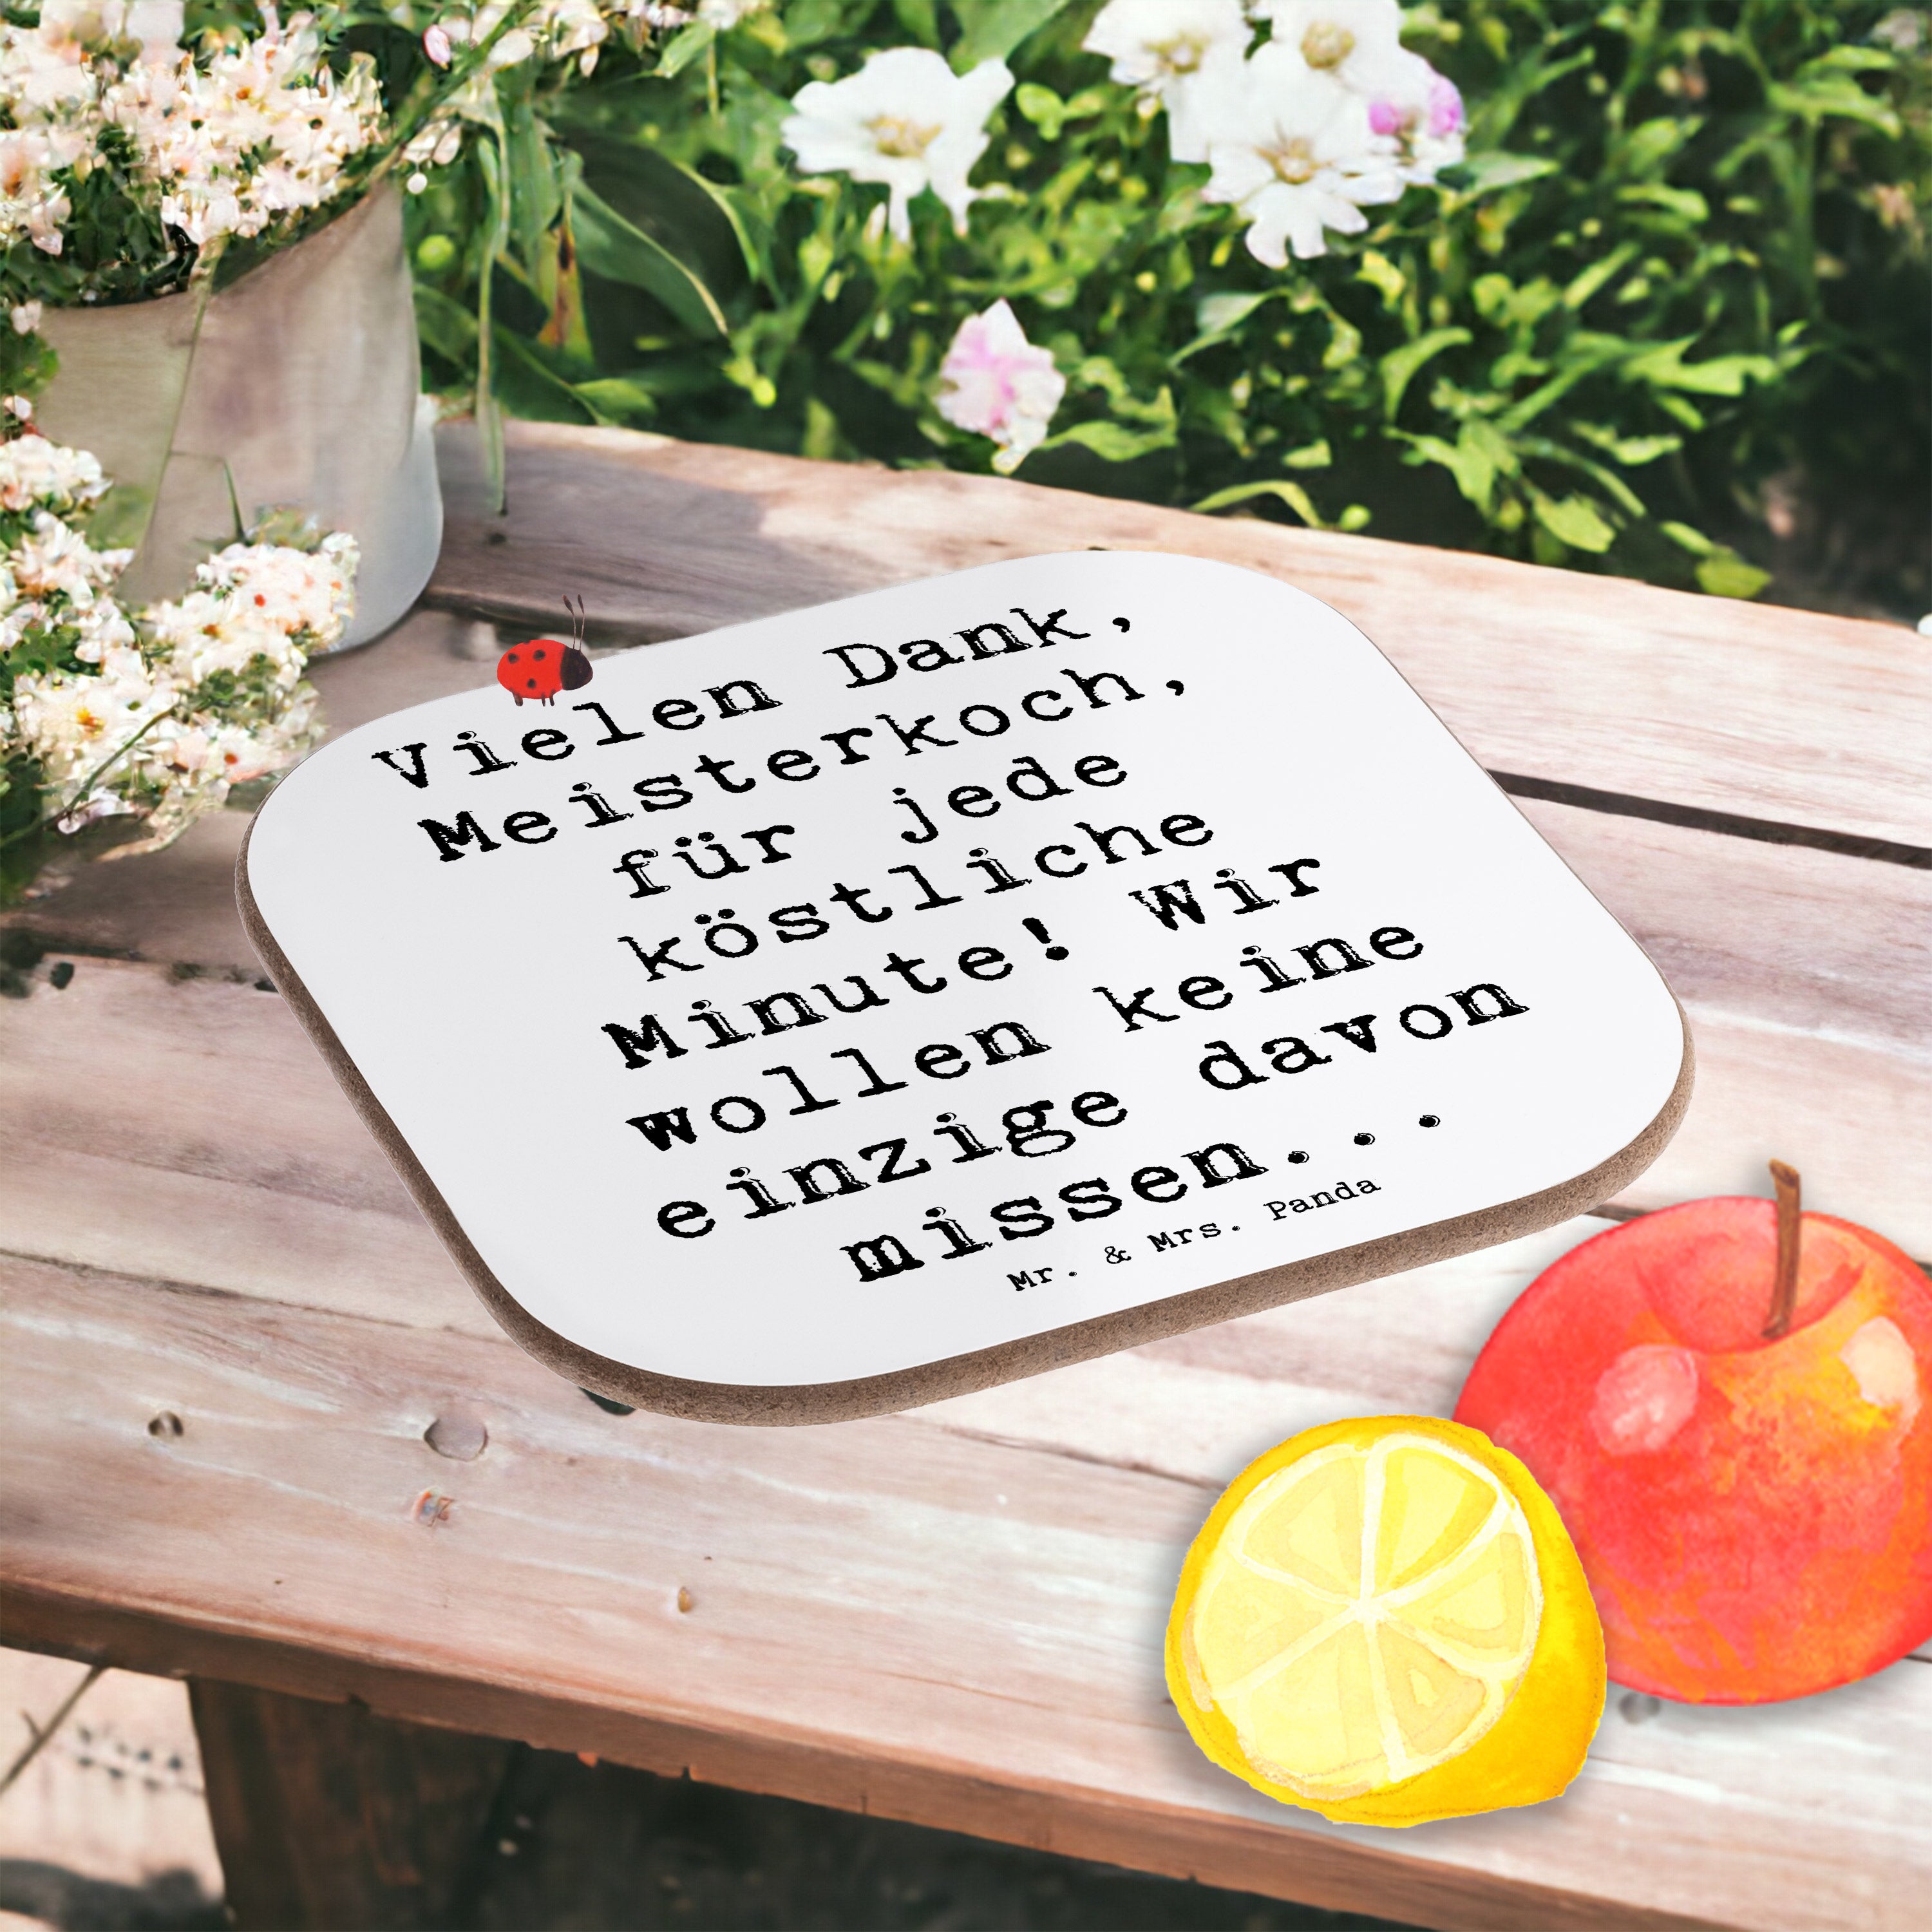 Vielen Dank,
Meisterkoch,
für jede
köstliche
Minute! Wir
wollen keine
einzige davon
missen...
Mr. & Mrs. Panda